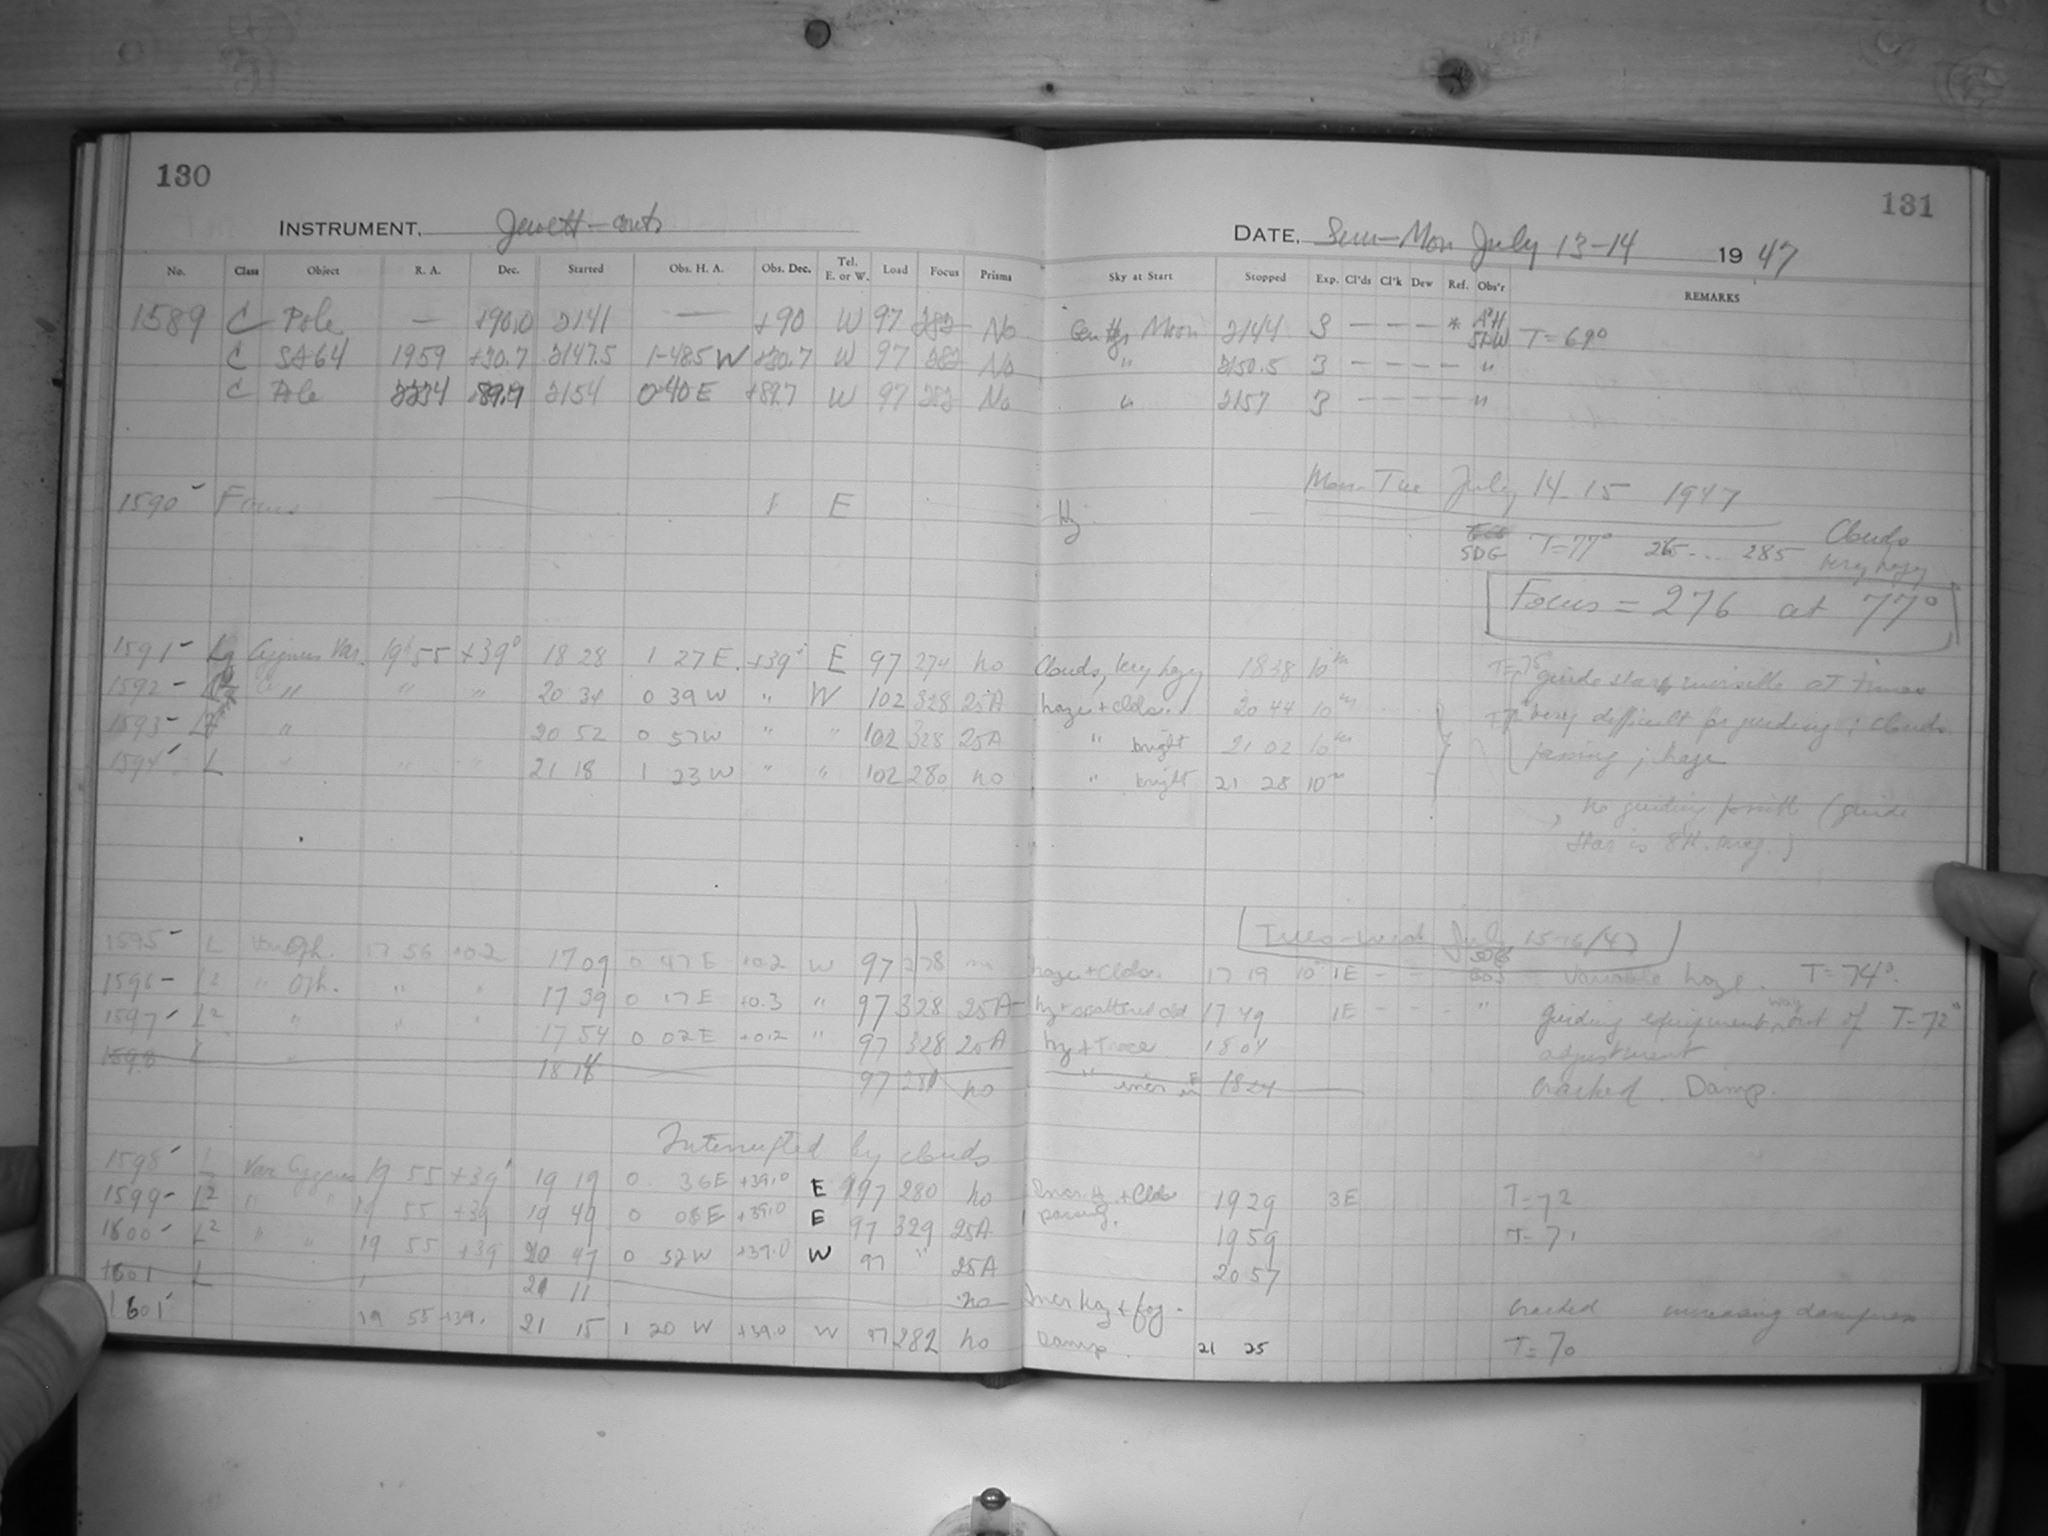 130
131
INSTRUMENT, Jewett
DATE, Sun-Mon July 13-14 1947
No. Class Object R. A. Dec. Started Obs. H. A. Obs. Dec. Tel. E. or W. Load Focus Prisms Sky at Start Stopped Exp. Cl'ds Cl'k Dew Ref. Obs'r REMARKS
1589 C Pole — +90.0 2141 — +90 W 97 282 No Moon 2144 3 — — — * T=69°
C SA64 1959 +30.7 2147.5 1-48.5 W +30.7 W 97 282 No " 2150.5 3 — — — — "
C Pole 2234 +89.9 2154 0-40 E +89.7 W 97 282 No " 2157 3 — — — — "
Mon-Tue July 14-15 1947
1590 Focus E hz
SDG T=77° 265 ... 285 Clouds very hazy
Focus = 276 at 77°
1591 Cygnus Var. 19h 55 +39° 18 28 1 27 E. +39° E 97 274 no Clouds, very hazy 1838 10m T=75 guide star invisible at times
1592 " " " 20 34 0 39 W " W 102 328 25A haze + clds. 20 44 10m very difficult for guiding; clouds
1593 " 20 52 0 57 W " " 102 328 25A " bright 21 02 10m passing; haze
1594 L " 21 18 1 23 W " " 102 280 no " bright 21 28 10m
no guiding (guide
star is 8th mag.)
Tues-Wed July 15-16/47
1595 L Oph. 17 56 +0.2 1709 0 47 E +0.2 W 97 278 haze + clds. 17 19 10 1E - - Variable haze. T=74°.
1596 L2 " Oph. " " 17 39 0 17 E +0.3 " 97 328 25A hz + scattered cld 17 49 1E - - - " guiding equipment way out of T=72°
1597 L2 " " " 17 54 0 02 E +0.2 " 97 328 25A hz + Trace 1804 adjustment
1598 L " 18 14 97 281 no " 1824 Cracked. Damp.
Interrupted by clouds
1598 L Var Cygnus 19 55 +39 19 19 0 36 E +39.0 E 97 280 no Incr. hz + Clds 1929 3E T=72
1599 L2 " " 19 55 +39 19 49 0 06 E +39.0 E 97 329 25A passing. 1959 T=71
1600 L2 " " 19 55 +39 20 47 0 52 W +39.0 W 97 " 25A 2057
1601 L 21 11 no Incr haz + fog - Cracked increasing dampness
1601 19 55 +39. 21 15 1 20 W +39.0 W 97 282 no Damp. 21 25 T=70